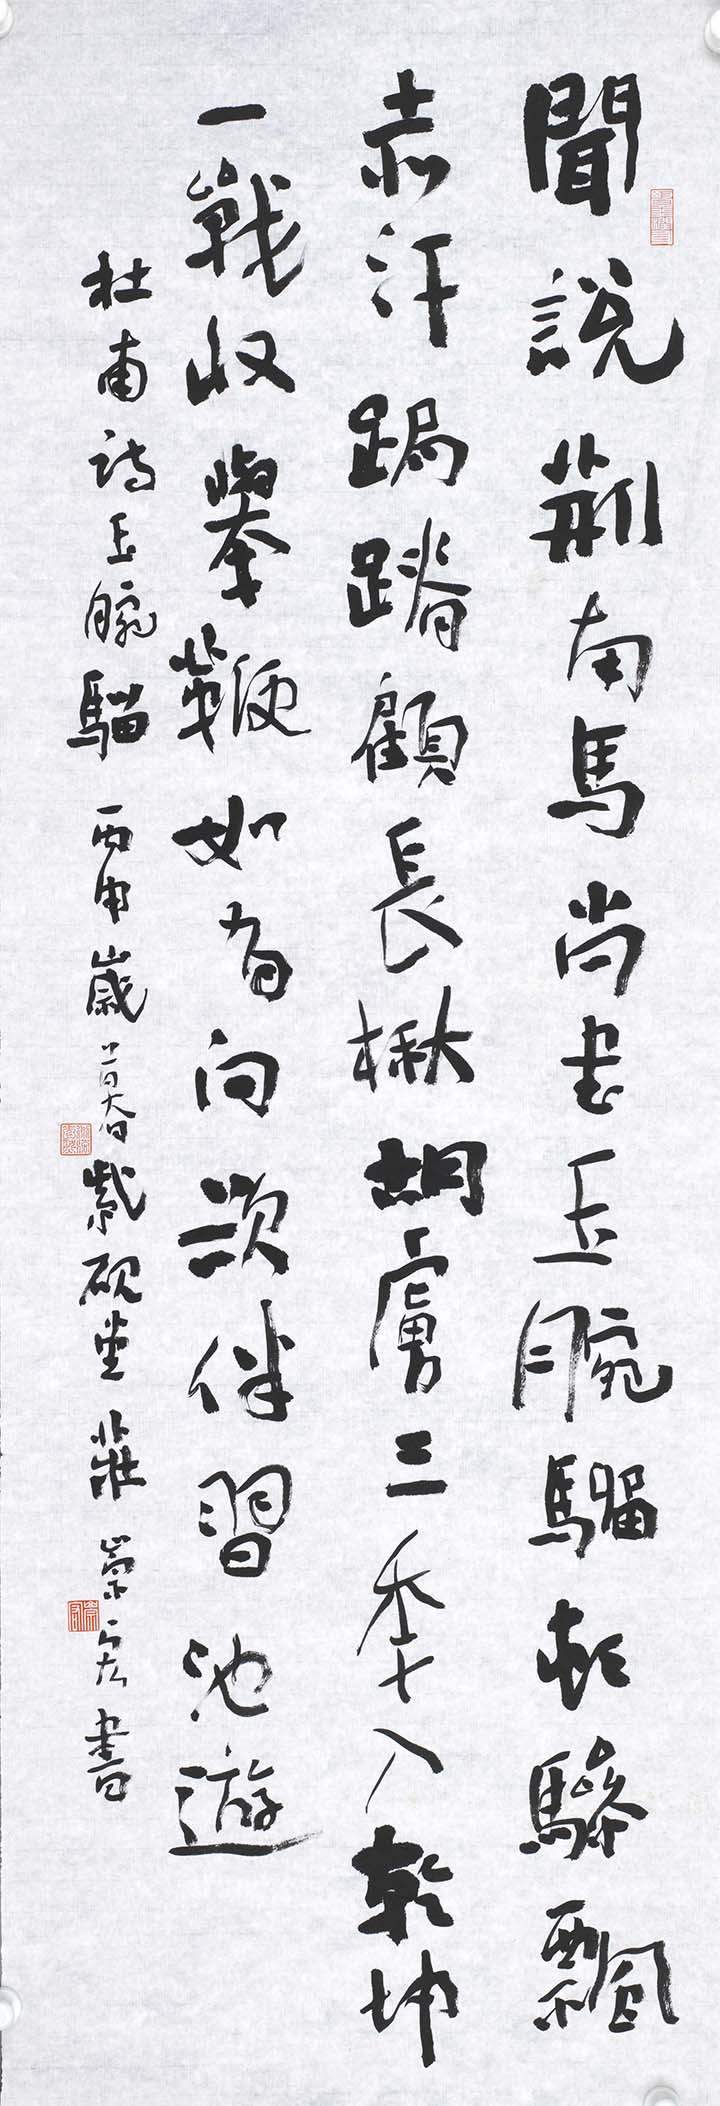 聞說荊南馬尚書玉腕騮頓驂飄
赤汗跼蹐顧長楸胡虜三秊入乾坤
一戰收舉鞭如有問欲伴習池遊
杜甫詩玉腕騮 丙申歲暮紫硯堂莊崇宏書